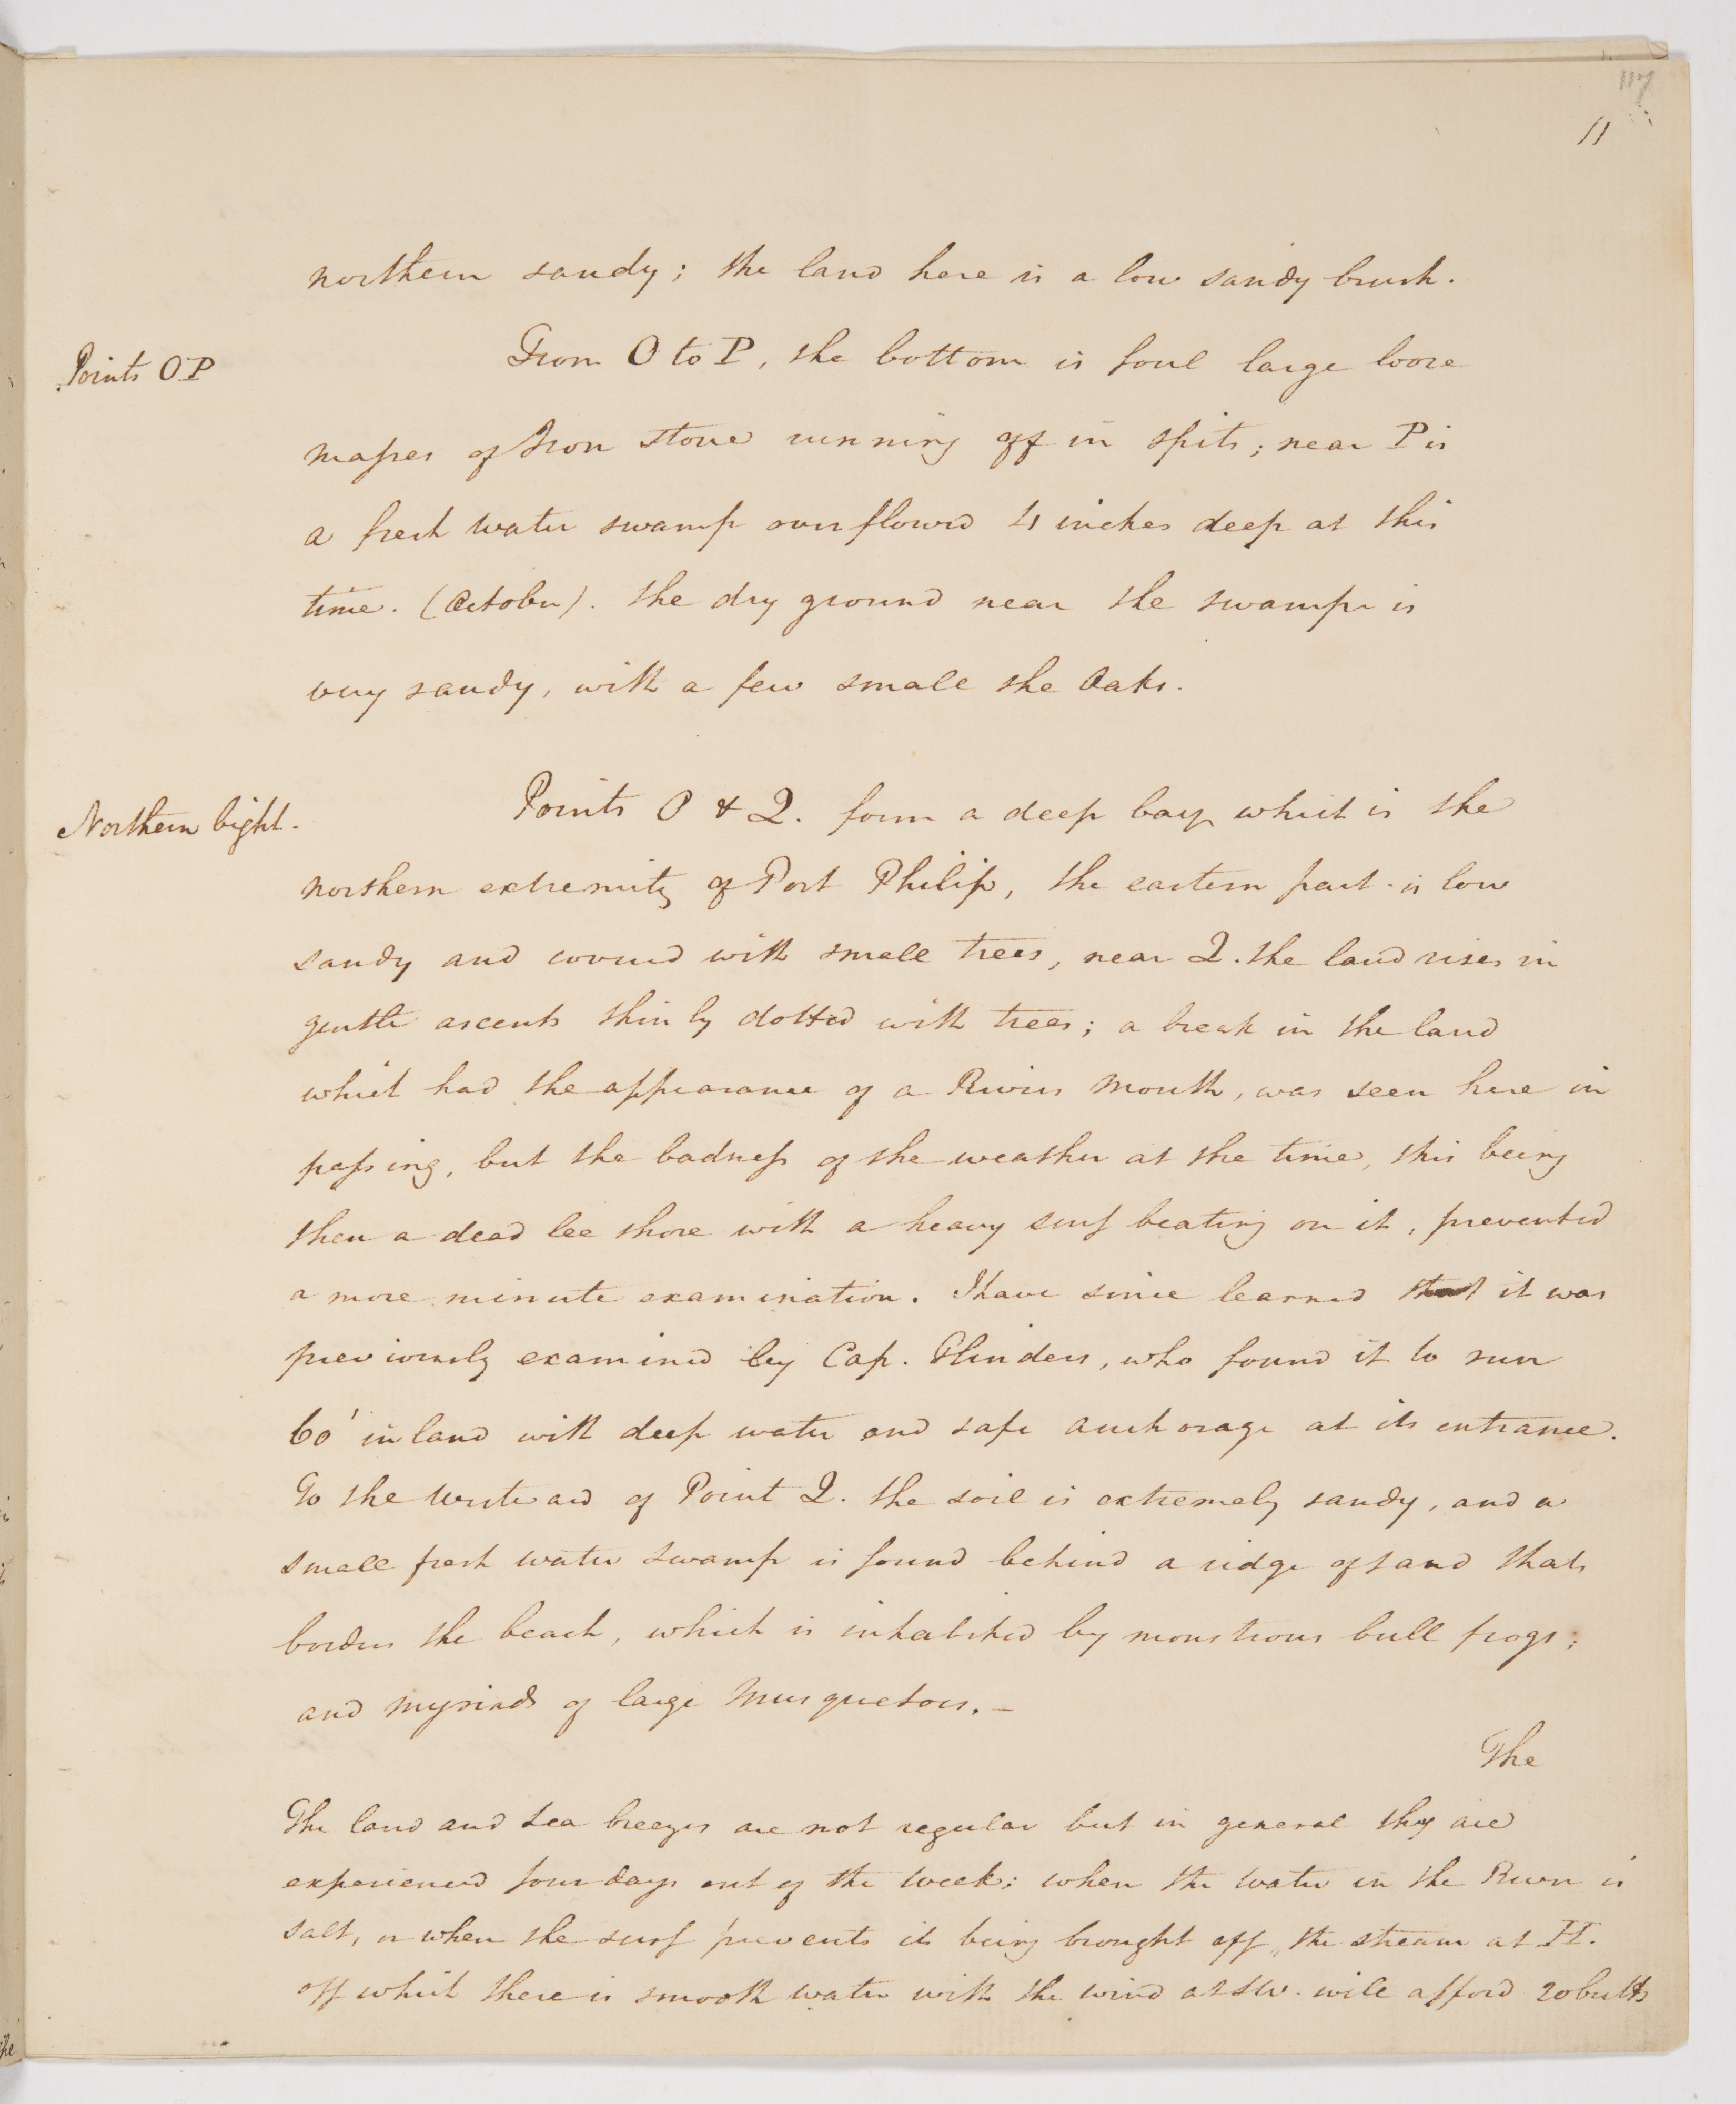 117
11
northern sandy; the land here is a low sandy brush.
Points O P
From O to P, the bottom is foul large loose
masses of Iron stone running off in spits; near P is
a fresh water swamp overflowed 4 inches deep at this
time. (October). The dry ground near the swamps is
very sandy, with a few small she Oaks.
Northern bight.
Points P & Q. form a deep bay which is the
northern extremity of Port Philip, the eastern part is low
sandy and covered with small trees, near Q. the land rises in
gentle ascents thinly dotted with trees; a break in the land
which had the appearance of a Rivers mouth, was seen here in
passing, but the badness of the weather at the time, this being
then a dead lee shore with a heavy surf beating on it, prevented
a more minute examination. I have since learned that it was
previously examined by Cap. Flinders, who found it to run
60' inland with deep water and safe anchorage at its entrance.
To the Westward of Point Q. the soil is extremely sandy, and a
small fresh water swamp is found behind a ridge of sand that
borders the beach, which is inhabited by monstrous bull frogs;
and myriads of large Musquetoes. –
The
The land and sea breezes are not regular but in general they are
experienced four days out of the week; when the water in the River is
salt, or when the surf prevents its being brought off, the stream at II.
off which there is smooth water with the wind at SW. will afford 20 butts